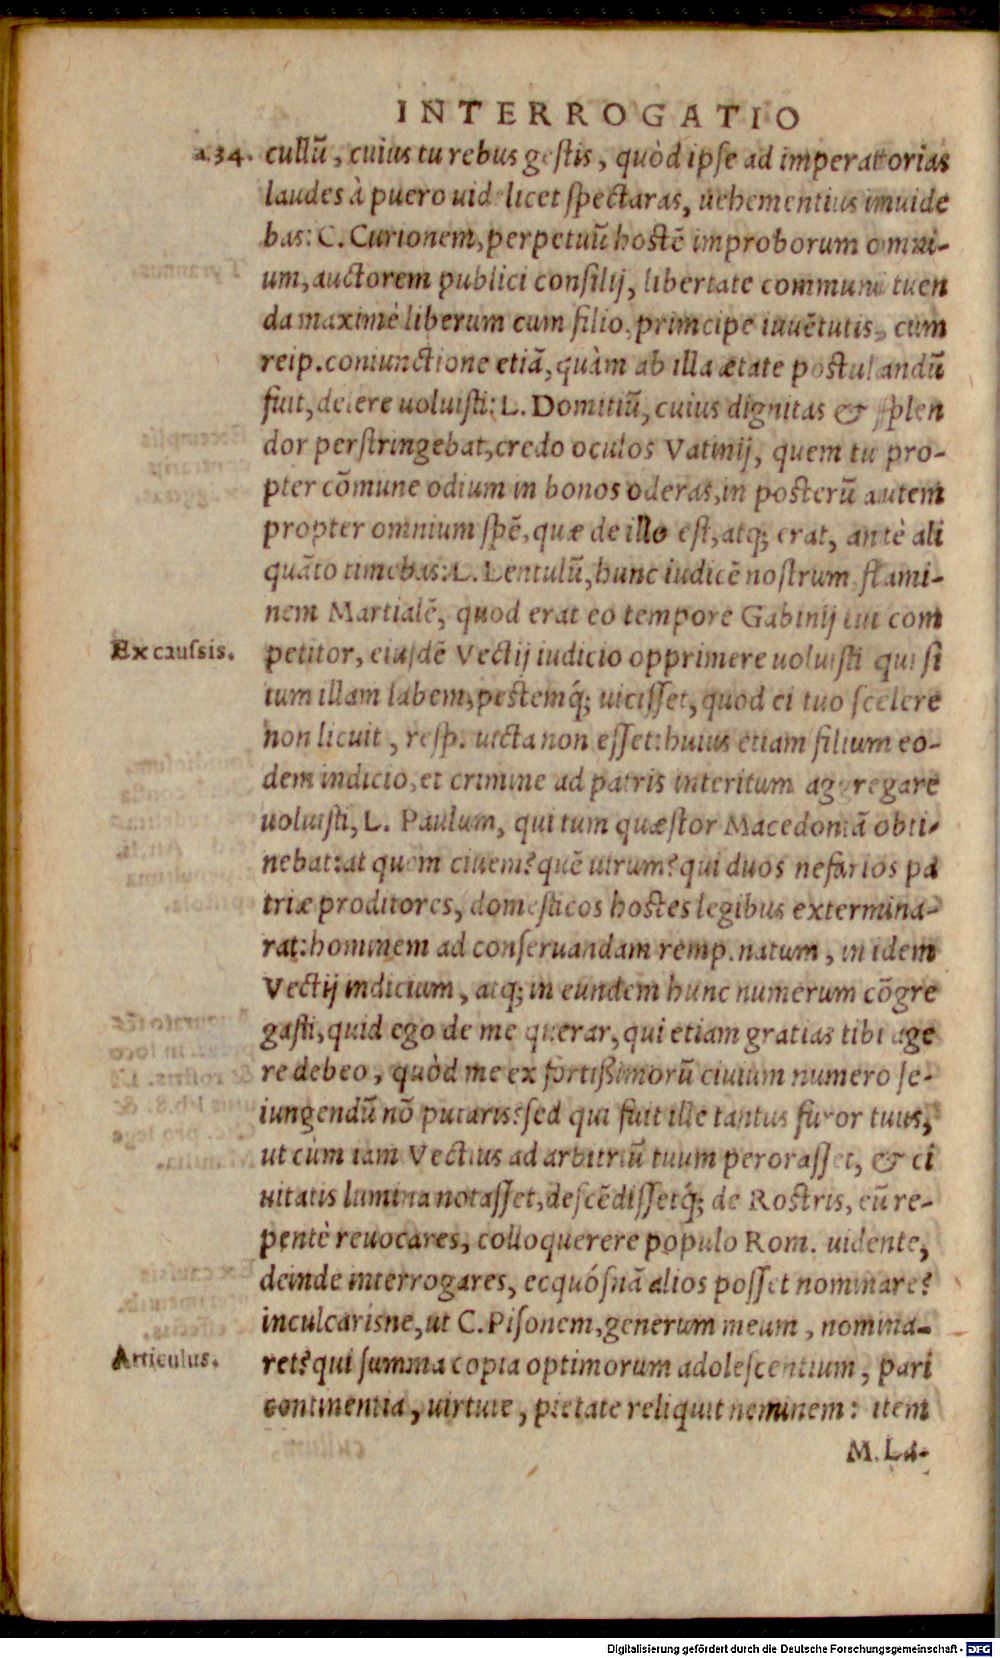 INTERROGATIO
a.34. cullũ, cuius tu rebus gestis, quòd ipse ad imperatorias
laudes à puero uidelicet spectaras, uehementius inuide
bas: C. Curionem, perpetuũ hostẽ improborum omni-
um, auctorem publici consilij, libertate communi tuen
da maximè liberum cum filio, principe iuuẽtutis, cum
reip. coniunctione etiã, quàm ab illa ætate postulandũ
fuit, delere uoluisti: L. Domitiũ, cuius dignitas & splen
dor perstringebat, credo oculos Vatinij, quem tu pro-
pter cõmune odium in bonos oderas, in posterũ autem
propter omnium spẽ, quæ de illo est, atq; erat, antè ali
quãto timebas: L. Lentulũ, hunc iudicẽ nostrum, flami-
nem Martialẽ, quod erat eo tempore Gabinij tui com
Ex caussis. petitor, eiusdẽ Vectij iudicio opprimere uoluisti qui si
tum illam labem, pestemq́; uicisset, quod ei tuo scelere
non licuit, resp. uicta non esset: huius etiam filium eo-
dem indicio, et crimine ad patris interitum aggregare
uoluisti, L. Paulum, qui tum quæstor Macedoniã obti-
nebat: at quem ciuem? quẽ uirum? qui duos nefarios pa
triæ proditores, domesticos hostes legibus extermina-
rat: hominem ad conseruandam remp. natum, in idem
Vectij indicium, atq; in eundem hunc numerum cõgre
gasti, quid ego de me querar, qui etiam gratias tibi age
re debeo, quòd me ex fortißimorũ ciuium numero se-
iungendũ nõ putaris? sed qui fuit ille tantus furor tuus,
ut cùm iam Vectius ad arbitriũ tuum perorasset, & ci
uitatis lumina notasset, descẽdissetq́; de Rostris, eũ re-
pentè reuocares, colloquerere populo Rom. uidente,
deinde interrogares, ecquósnã alios posset nominare?
inculcarisne, ut C. Pisonem, generum meum, nomina-
Articulus. ret? qui summa copia optimorum adolescentium, pari
continentia, uirtute, pietate reliquit neminem: item
M. La-
Digitalisierung gefördert durch die Deutsche Forschungsgemeinschaft - DFG